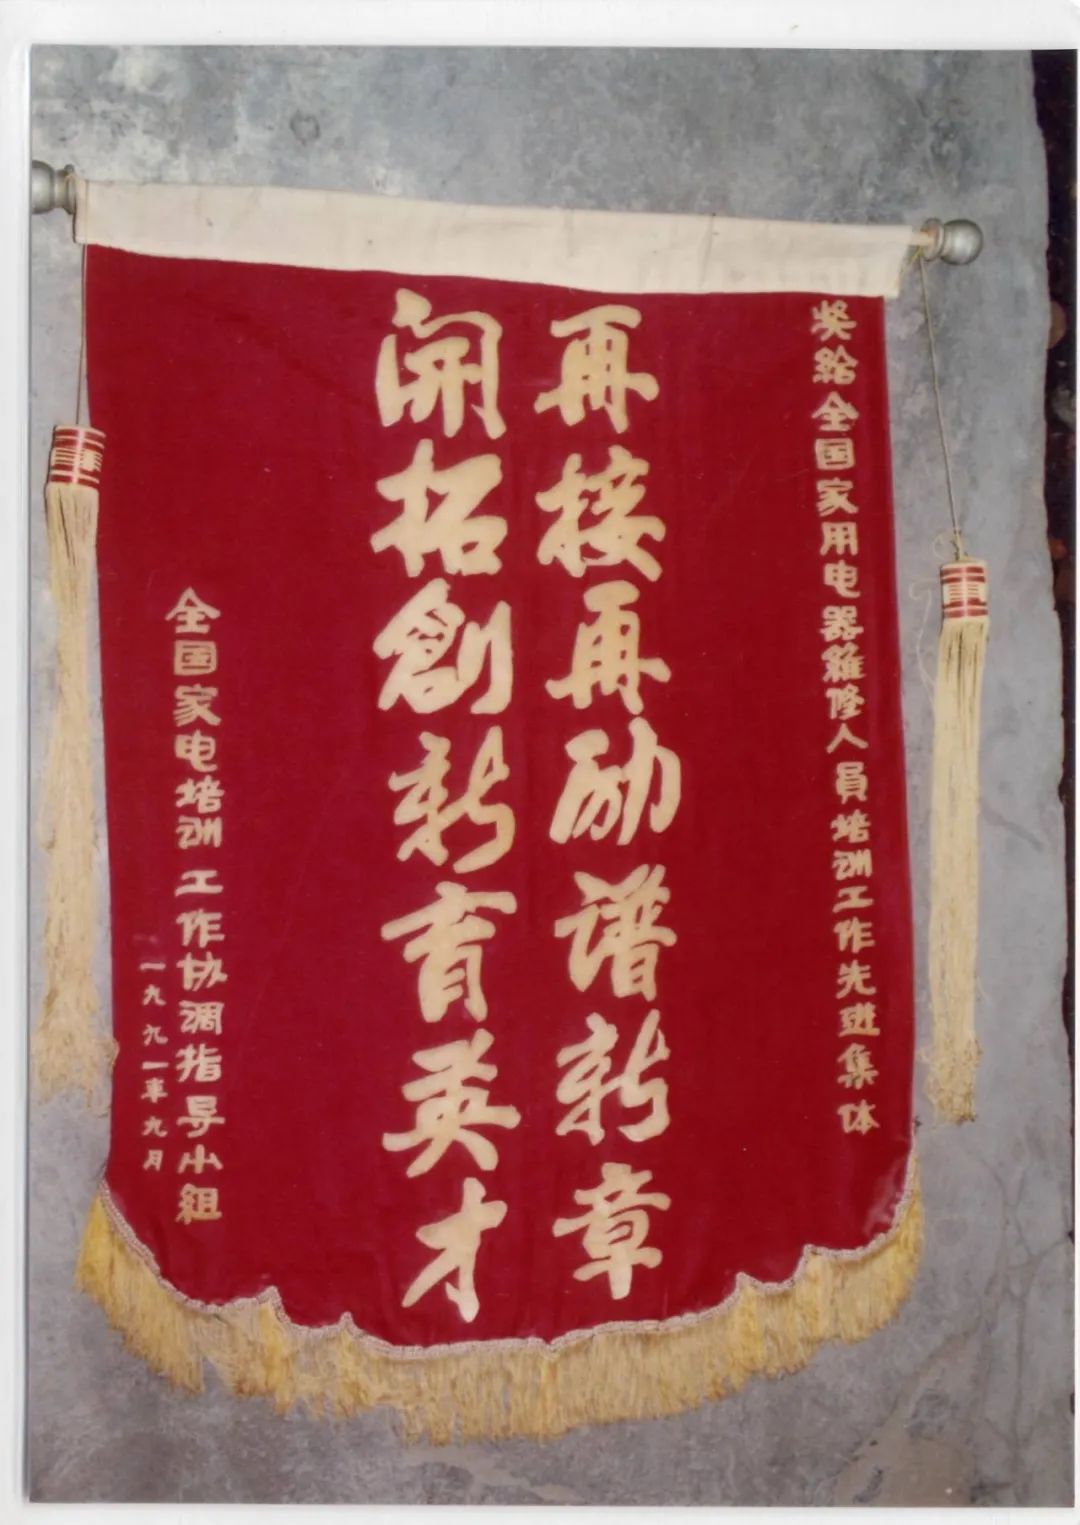 奖给全国家用电器維修人员培训工作先进集体
再接再励谱新章
開拓創新育英才
全国家电培训工作协调指导小组
一九九一年九月